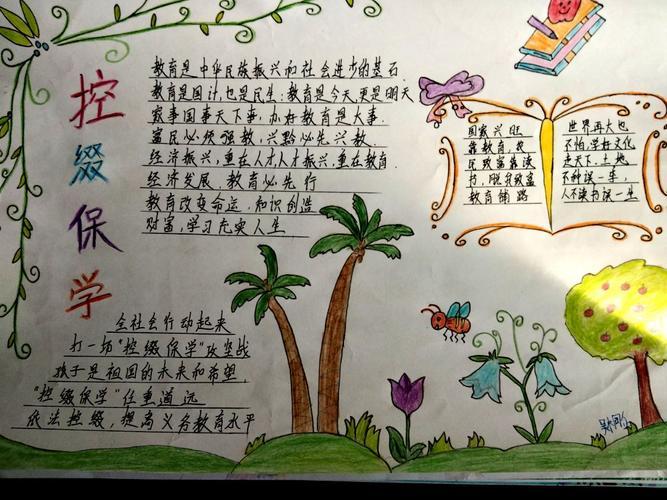 控缀保学
教育是中华民族振兴和社会进步的基石
教育是国计,也是民生;教育是今天更是明天
家事国事天下事,办好教育是大事.
富民必须强教,兴黔必先兴教.
经济振兴,重在人才人才振兴,重在教育.
经济发展,教育必先行
教育改变命运,知识创造
财富,学习充实人生
国家兴旺
靠教育,致
民政富靠读
书,脱贫致富
教育铺路
世界再大也
不怕,学好文化
走天下.土地
不种误一年,
人不读书误一生
全社会行动起来
打一场“控缀保学”攻坚战
孩子是祖国的未来和希望,
“控缀保学”任重道远
依法控缀,提高义务教育水平